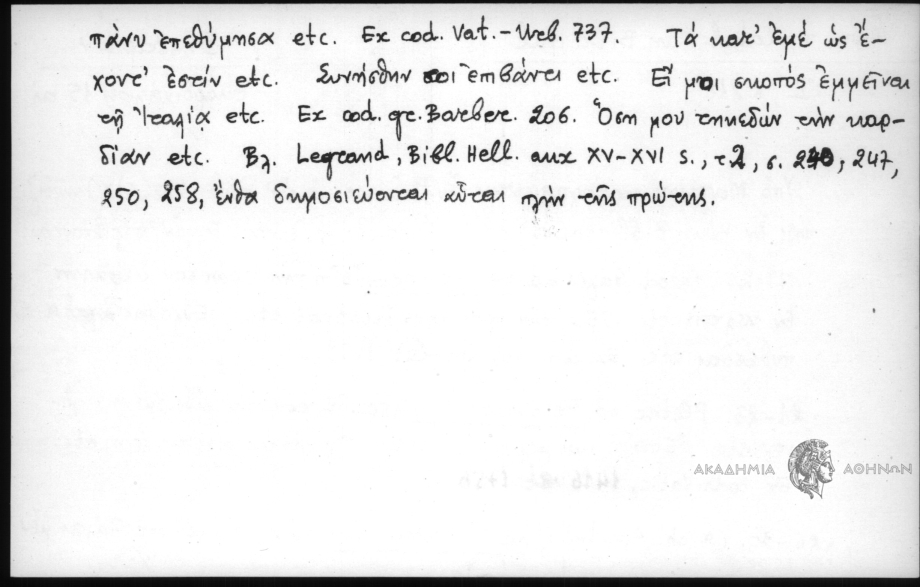 πάνυ ἐπεθύμησα etc. Ex cod. Vat.-Urb. 737. Τά κατ' ἐμέ ὡς ἔ-
χοντ' ἐστίν etc. Συνήσθην σοι ἐπιβάντι etc. Εἴ μοι σκοπός ἐμμεῖναι
τῇ Ἰταλίᾳ etc. Ex cod. gr. Barber. 206. Ὅση μου τηκεδών τήν καρ-
δίαν etc. Βλ. Legrand, Bibl. Hell. aux XV-XVI s., τ. 2, σ. 247,
250, 258, ἔνθα δημοσιεύονται αὗται πλήν τῆς πρώτης.
ΑΚΑΔΗΜΙΑ ΑΘΗΝΩΝ